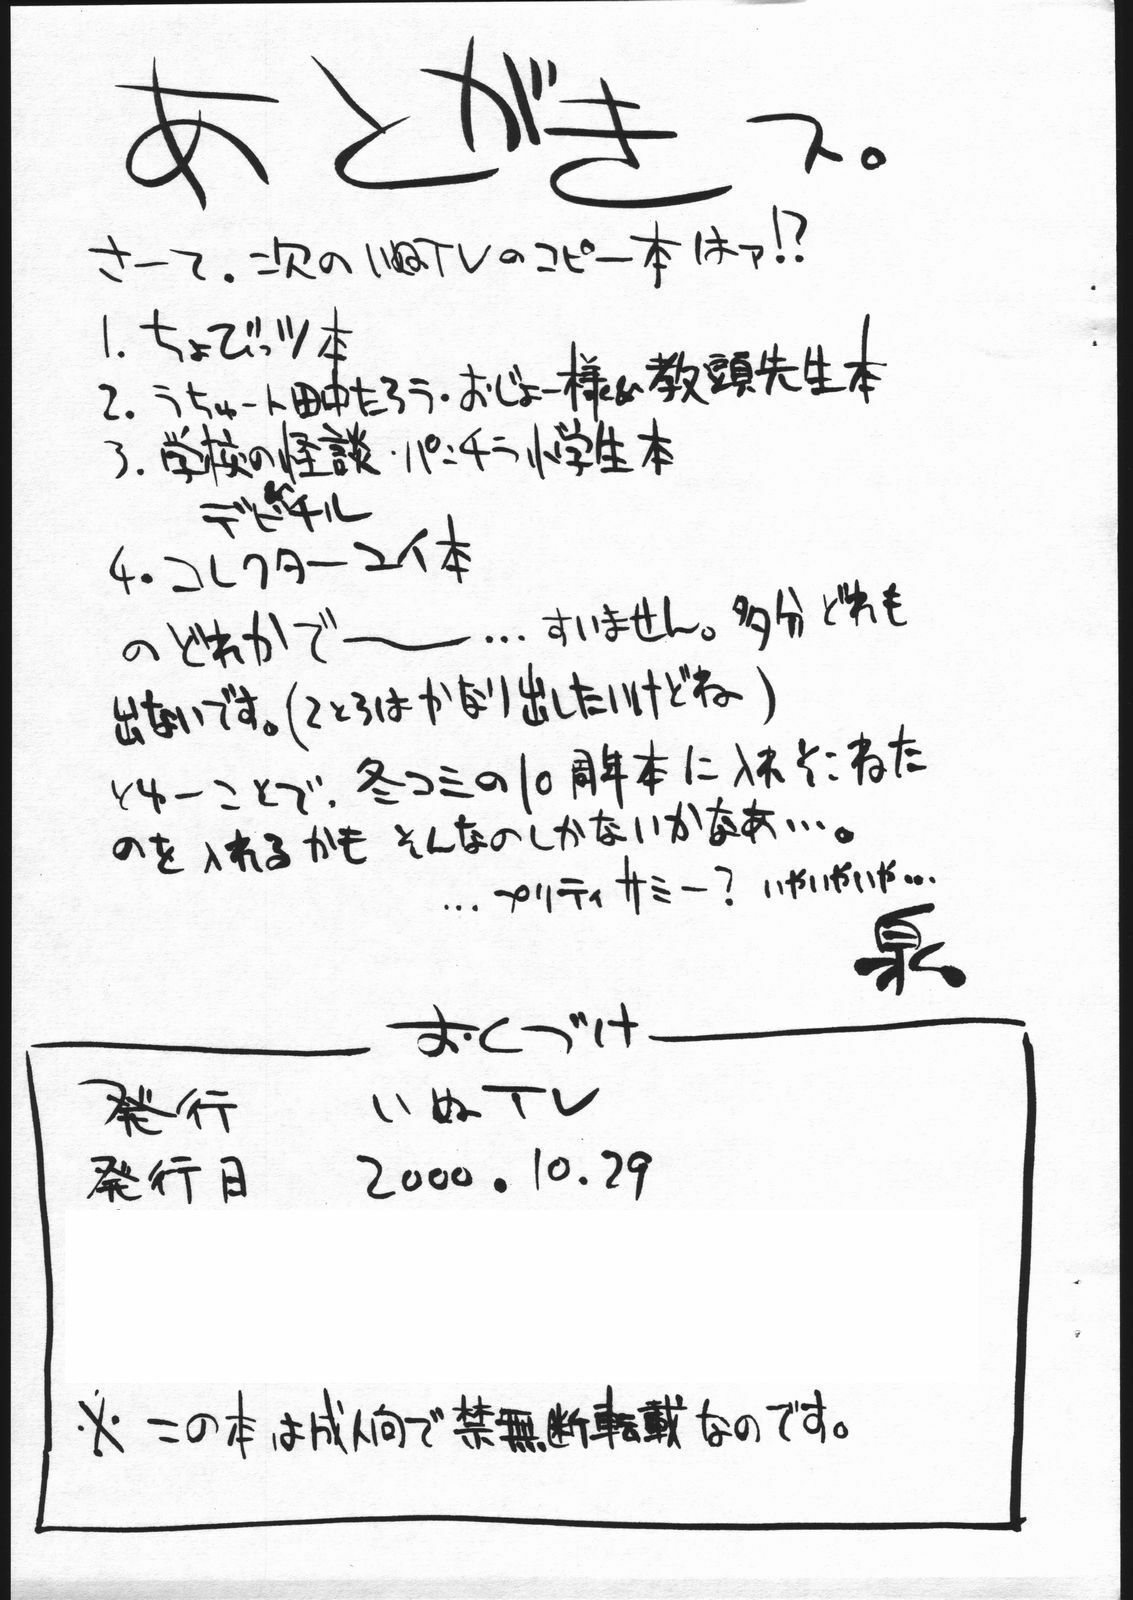 あとがきっス。
さーて。次のいぬTVのコピー本はァ!?
1. ちょびっツ本
2. うちゅー人田中たろう・おじょー様&教頭先生本
3. 学校の怪談・パンチラ小学生本
デビチル
4. コレクターユイ本
のどれかで――…すいません。多分どれも
出ないです。(2と3はかなり出したいけどね)
とゆーことで、冬コミの10周年本に入れそこねた
のを入れるかもそんなのしかないかなあ…。
…プリティサミー? いやいやいや…
泉
おくづけ
発行 いぬTV
発行日 2000.10.29
※この本は成人向で禁無断転載なのです。